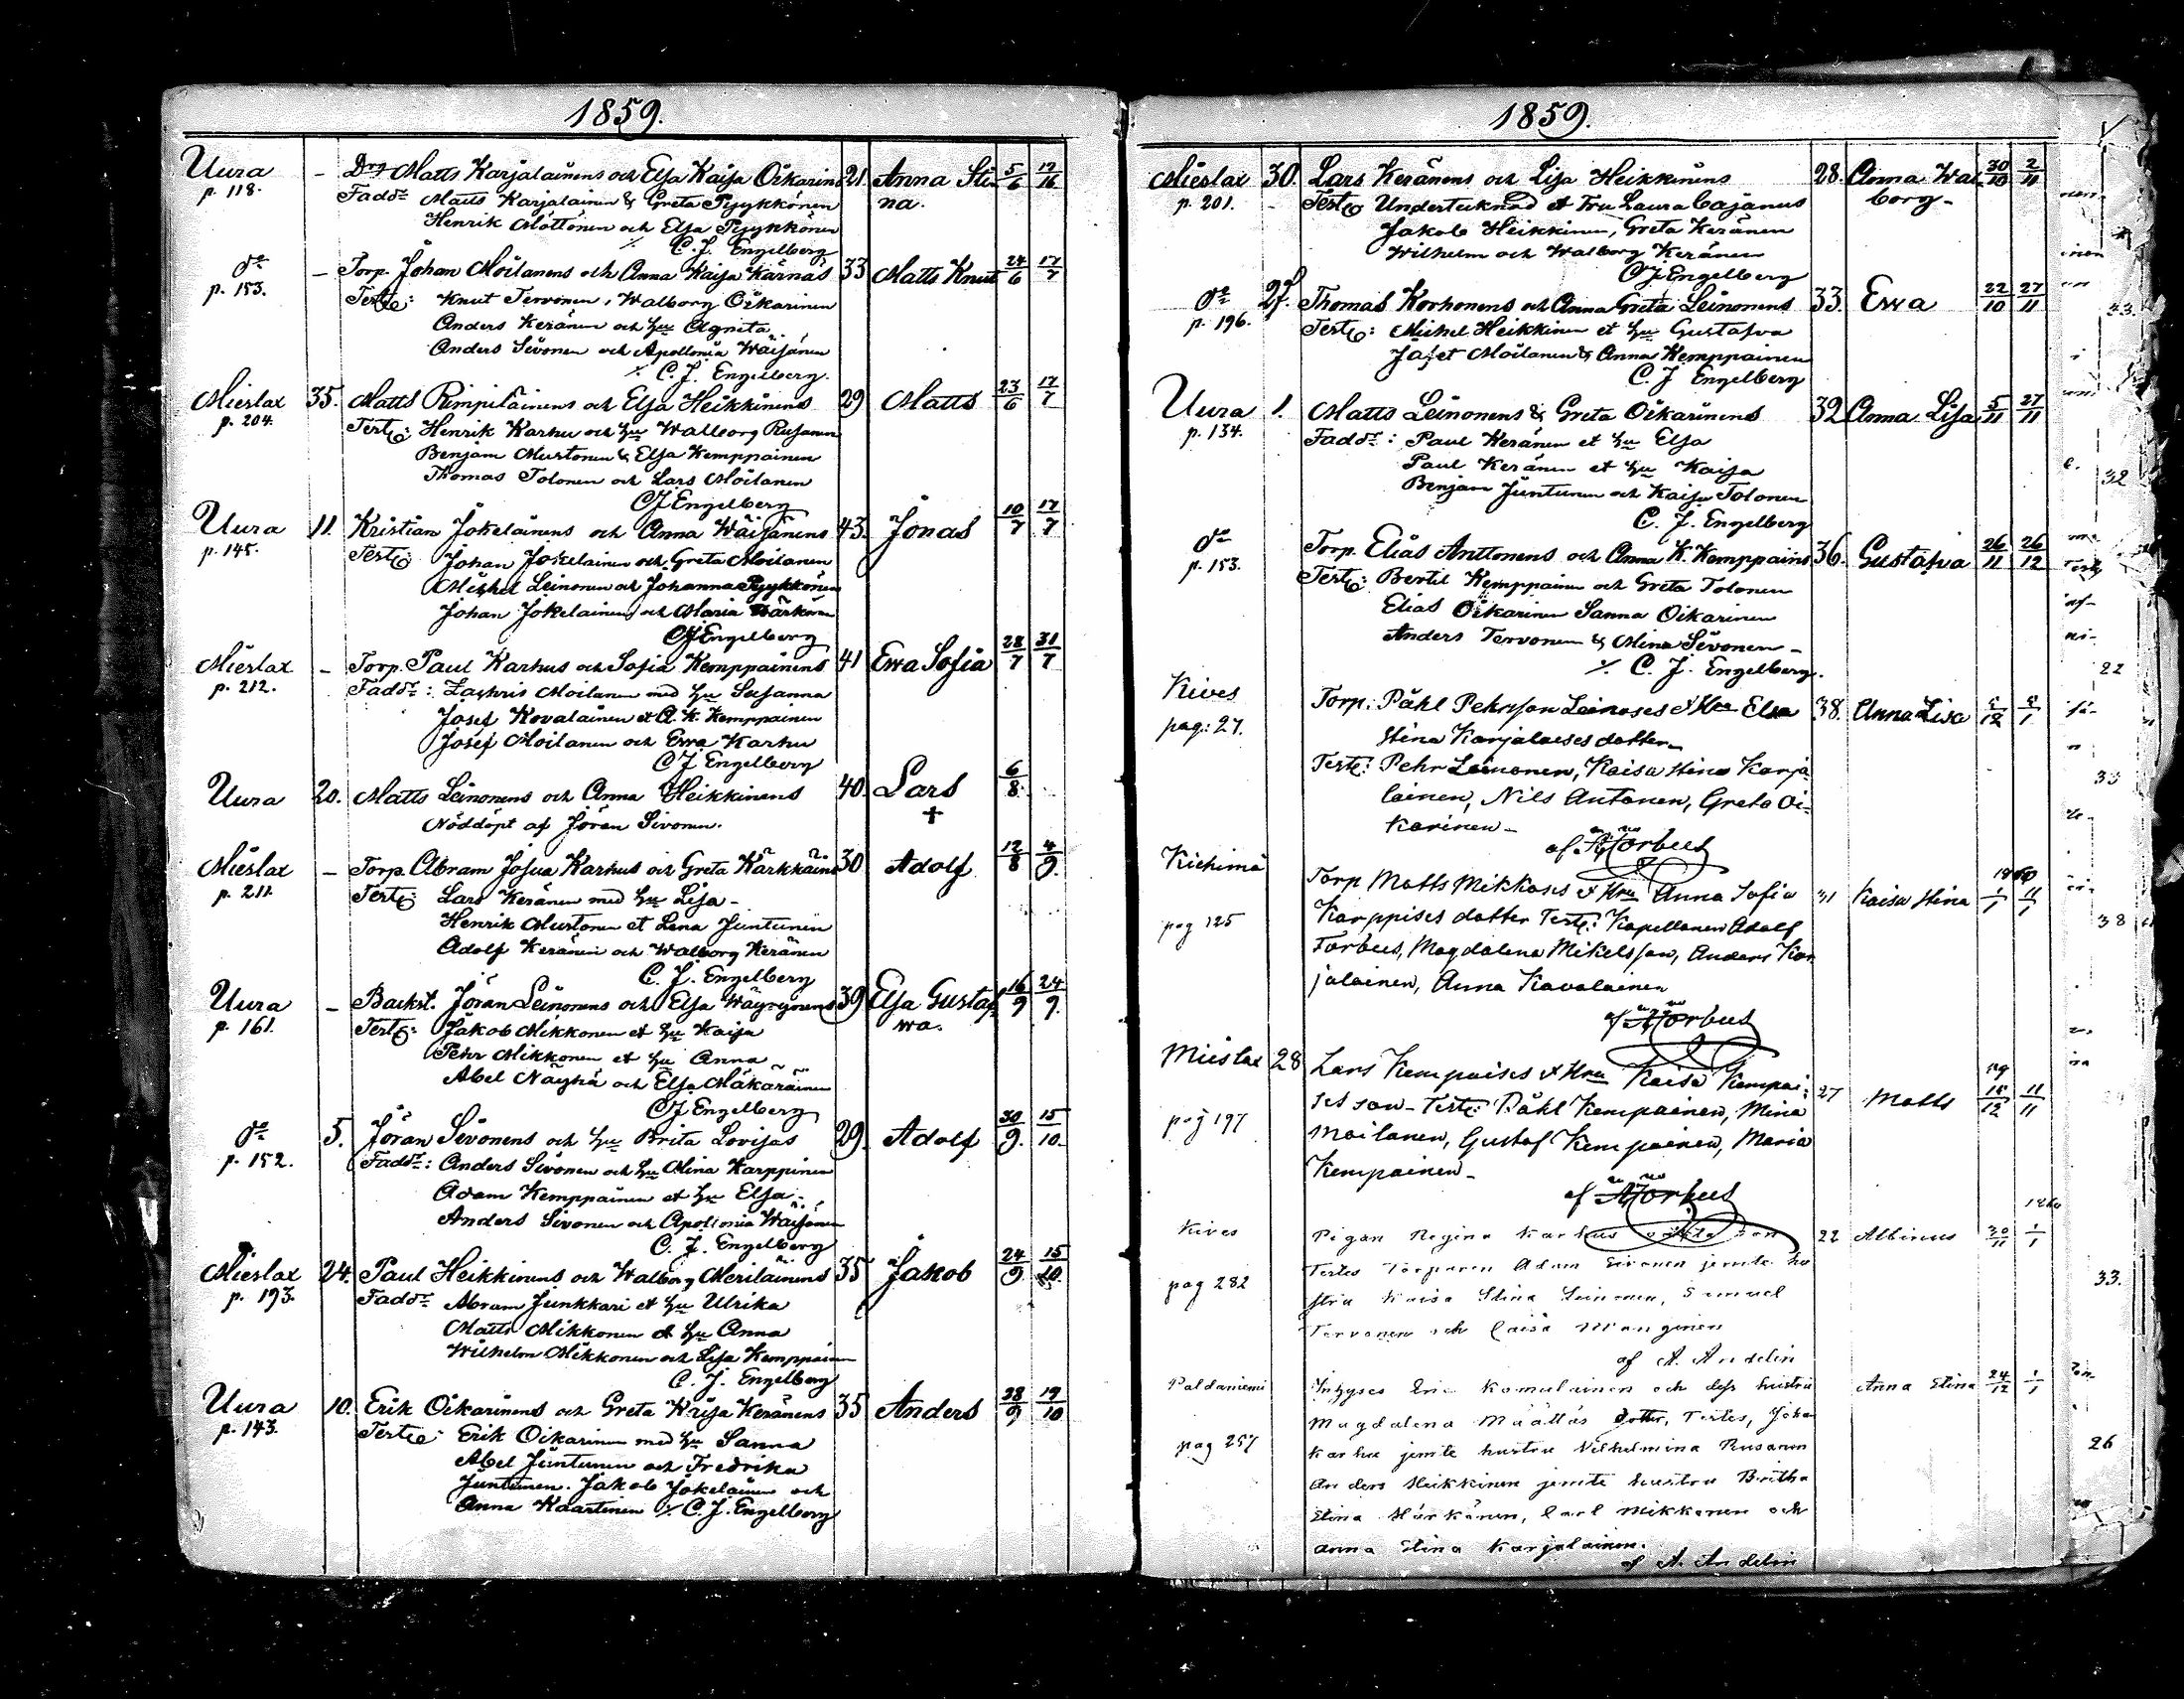 1859.
Uura - Drg Matts Karjalainens och Elsa Kaisa Oikarins 21. Anna Sti- 5/6 17/16
p. 118. Faddr Matts Karjalainen & Greta Pyykkönen na.
Henrik Möttönen och Elsa Pyykkönen
C. J. Engelberg
do - Torp. Johan Moilanens och Anna Kaisa Kärnäs 33 Matts Knut 24/6 17/7
p. 153. Test: Knut Tervonen, Walborg Oikarinen
Anders Keränen och hu Agneta
Anders Sivonen och Apollonia Wäisänen
C. J. Engelberg.
Mieslax 35. Matts Rimpiläinens och Elsa Heikkinens 29 Matts 23/6 17/7
p. 204. Test: Henrik Karhu och hu Walborg Rusanen
Benjam Mustonen & Elsa Kemppainen
Thomas Tolonen och Lars Moilanen
CJ Engelberg
Uura 11. Kristian Jokelainens och Anna Wäisänens 43. Jonas 10/7 17/7
p. 145. Test: Johan Jokelainen och Greta Moilanen
Michel Leinonen och Johanna Pyykkönen
Johan Jokelainen och Maria Härkönen
CJ Engelberg
Mieslax - Torp. Paul Karhus och Sofia Kemppainens 41 Ewa Sofia 28/7 31/7
p. 212. Faddr: Zachris Moilanen med hu Susanna
Josef Kovalainen et A. K. Kemppainen
Josef Moilanen och Ewa Karhu
CJ Engelberg
Uura 20. Matts Leinonens och Anna Heikkinens 40. Lars 6/8
Nöddöpt af Jöran Sivonen. +
Mieslax - Torp. Abram Josua Karhus och Greta Karkkains 30 Adolf 12/8 4/9.
p. 211. Test: Lars Keränen med hu Lisa -
Henrik Mustonen et Lena Juntunen
Adolf Keränen och Walborg Keränen
C. J. Engelberg
Uura - Backst. Jöran Leinonens och Elsa Wäyrynens 39 Elsa Gustaf- 16/9 24/9.
p. 161. Test: Jakob Mikkonen et hu Kaisa wa.
Pehr Mikkonen et hu Anna
Abel Näyhä och Elsa Mäkäräinen
CJ Engelberg
do 5. Jöran Sivonens och hu Brita Lovisas 29. Adolf 30/9. 15/10.
p. 152. Faddr: Anders Sivonen och hu Mina Karppinen
Adam Kemppainen et hu Elsa -
Anders Sivonen och Apollonia Wäisänen
C. J. Engelberg
Mieslax 24. Paul Heikkinens och Walborg Meriläinens 35 Jakob 24/9 15/10.
p. 193. Faddr Abram Junkkari et hu Ulrika
Matts Mikkonen et hu Anna
Wilhelm Mikkonen och Lisa Kemppainen
C. J. Engelberg
Uura 10. Erik Oikarinens och Greta Kaisa Keränens 35 Anders 28/9 19/10
p. 143. Test: Erik Oikarinen med hu Sanna
Abel Juntunen och Fredrika
Juntunen. Jakob Jokelainen och
Anna Kaartinen ./. C. J. Engelberg
1859.
Mieslax 30. Lars Keränens och Lisa Heikkinens 28. Anna Wal- 30/10 2/11
p. 201. Test: Undertecknad et Fru Laura Cajanus borg-
Jakob Heikkinen, Greta Keränen
Wilhelm och Walborg Keränen
CJ Engelberg
do 27. Thomas Korhonens och Anna Greta Leinonens 33. Ewa 22/10 27/11
p. 196. Test: Michel Heikkinen et hu Gustafva
Jafet Moilanen & Anna Kemppainen
C. J Engelberg
Uura 1. Matts Leinonens & Greta Oikarinens 32 Anna Lisa 5/11 27/11
p. 134. Faddr: Paul Keränen et hu Elsa
Paul Keränen et hu Kaisa
Benjam Juntunen och Kaisa Tolonen
C. J. Engelberg
do Torp. Elias Anttonens och Anna K. Kemppains 36. Gustafva 26/11 26/12
p. 153. Test: Bertil Kemppainen och Greta Tolonen
Elias Oikarinen Sanna Oikarinen
Anders Tervonen & Mina Sivonen -
./. C. J. Engelberg.
Kives Torp: Påhl Pehrson Leinoses & Hru Elsa 38. Anna Lisa
pag: 27. Stina Karjalaises dotter
Test: Pehr Leinonen, Kaisa Stina Karja
lainen, Nils Antonen, Greta Oi-
karinen -
af A Forbus
Kiehimä Torp Matts Mikkoses & Hru Anna Sofia 31 Kaisa Stina 1/1 11/1
pag 125 Karppises dotter Test: Kapellanen Adolf
Forbus, Magdalena Mikelsson, Anders Kar
jalainen, Anna Kovalainen
af A Forbus
Mieslax 28 Lars Kempaises & Hru Kaisa Kempai- 27 Matts
pag 197 ses son - Test: Påhl Kempainen, Mina
Moilanen, Gustaf Kempainen, Maria
Kempainen -
af A Forbus
Kives Pigan Regina Karhus oäkta son 22 Albinus 30/11 1/1
pag 282 Testes Torparen Adam Sivonen jemte hu
stru Kaisa Stina Leinonen, Samuel
Tervonen och Caisa Manginen
af A. Andelin
Paldaniemi Inhyses Eric Komulainen och dess hustru Anna Stina 24/12 1/1
Magdalena Määttäs dotter, Testes, Johan
pag 257 Karhu jemte hustru Vilhelmina Rusanen
Anders Heikkinen jemte hustru Britha
Stina Härkönen, Carl Mikkonen och
Anna Stina Karjalainen.
af A. Andelin